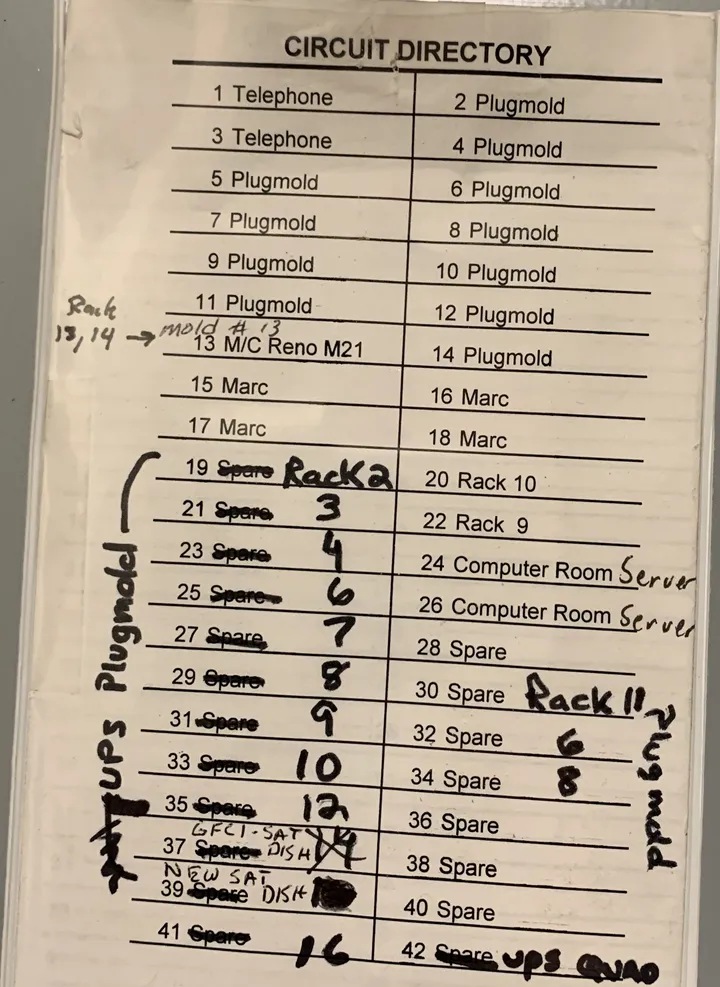 CIRCUIT DIRECTORY
1 Telephone
2 Plugmold
3 Telephone
4 Plugmold
5 Plugmold
6 Plugmold
7 Plugmold
8 Plugmold
9 Plugmold
10 Plugmold
Rack
13, 14 →
11 Plugmold
12 Plugmold
mold # 13
13 M/C Reno M21
14 Plugmold
15 Marc
16 Marc
17 Marc
18 Marc
19 Spare Rack 2
20 Rack 10
21 Spare 3
22 Rack 9
23 Spare 4
24 Computer Room Server
25 Spare 6
26 Computer Room Server
27 Spare 7
28 Spare
29 Spare 8
30 Spare Rack 11
31 Spare 9
32 Spare 6
33 Spare 10
34 Spare 8
35 Spare 12
36 Spare
GFCI-SAT
37 Spare DISH 14
38 Spare
NEW SAT
39 Spare DISH
40 Spare
41 Spare 16
42 Spare UPS QUAD
UPS Plugmold
Plugmold